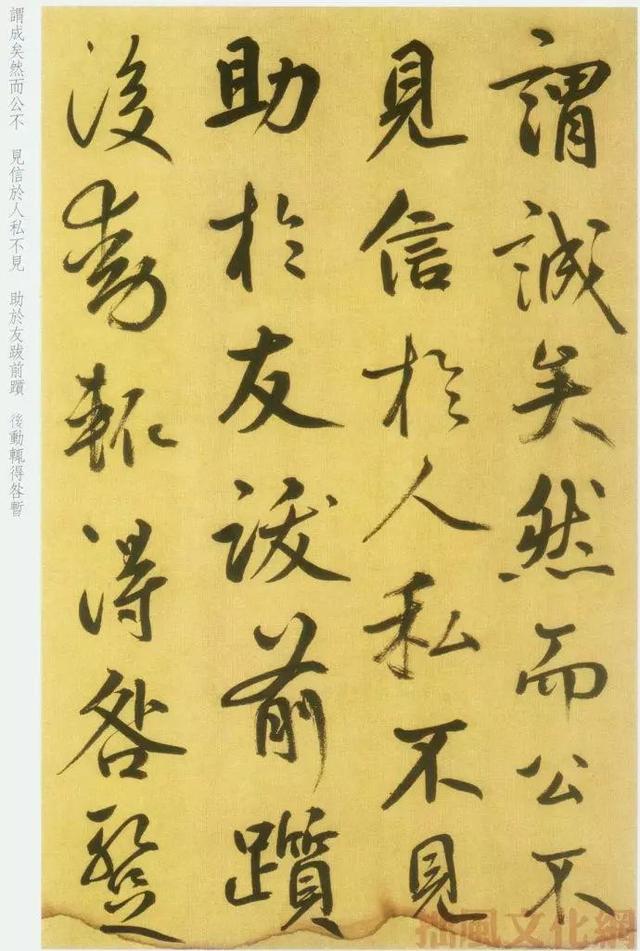 謂誠矣然而公不
見信於人私不見
助於友跋前躓
後動輒得咎暫
謂成矣然而公不　見信於人私不見　助於友跋前躓　後動輒得咎暫
拙風文化網